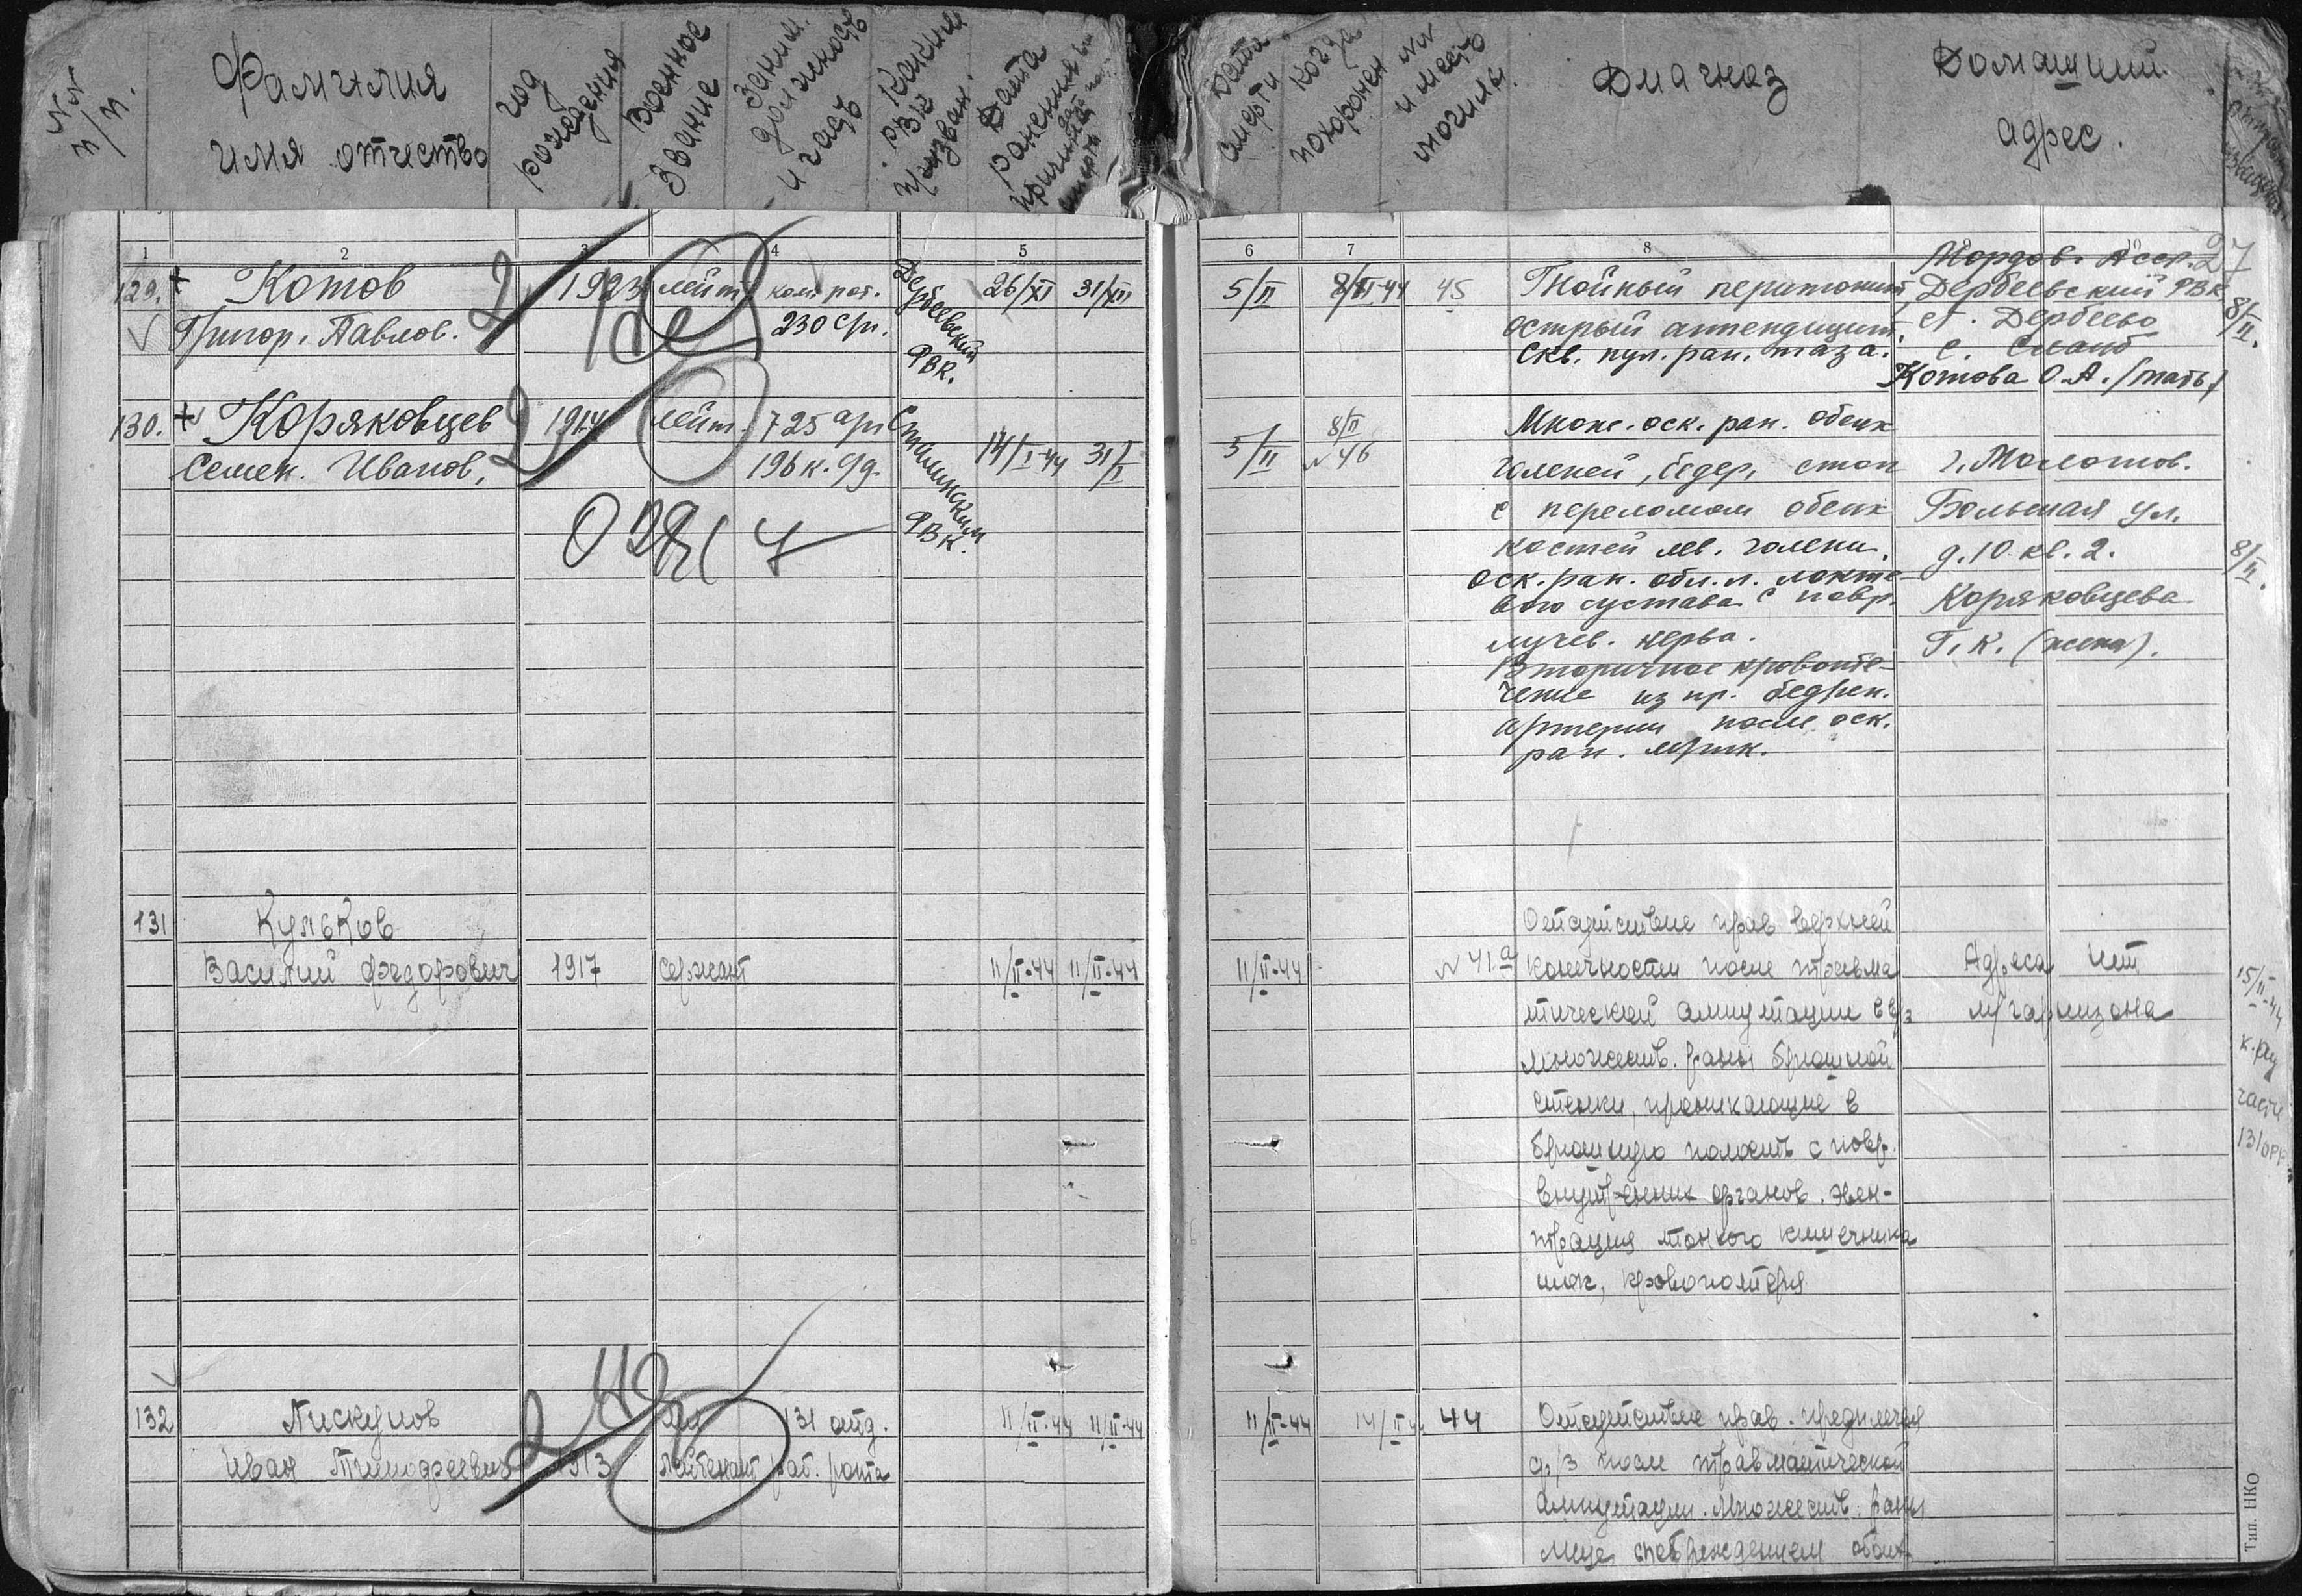 NN п/п.
Фамилия
имя отчество
год рождения
Военное звание
Заним. должность и часть
Каким РВК призван.
Дата ранения
Дата смерти
Когда похоронен
NN и место могилы.
Диагноз
Домашний
адрес.
1 2 3 4 5 6 7 8
27
129. Котов 1923 лейт. ком. рот. Дербеевский РВК. 26/XI 31/XII 5/II 8/II-44 45 Гнойный перитонит, Мордов. Асср.
Григор. Павлов. 230 сп. острый аппендицит. Дербеевский РВК
Скв. пул. ран. таза. ст. Дербеево 8/II.
с.
Котова О.А. (мать)
130. Коряковцев 1914 лейт. 725 ап Сталинским РВК. 14/I-44 31/I 5/II 8/II N 46 Множ. оск. ран. обеих
Семен. Иванов. 196 к. д. голеней, бедер, стоп г. Молотов.
с переломом обеих Большая ул.
костей лев. голени. д. 10 кв. 2. 8/II.
Оск. ран. обл. л. локте-
вого сустава с повр. Коряковцева
лучев. нерва. Г. К. (жена).
Вторичное кровоте-
чение из пр. бедрен.
артерии после оск.
ран. мягк.
131 Кульков Отсутствие прав верхней
Василий Федорович 1917 сержант 11/II-44 11/II-44 11/II-44 N 41.а конечности после травма Адреса нет 15/II-44
тической ампутации в в/з м/гарнизона
множеств. раны брюшной к-ру
стенки, проникающие в части
брюшную полость с повр. 131 орр
внутренних органов. Эвен-
трация тонкого кишечника
шок, кровопотеря
132 Пискунов мл 131 отд. 11/II-44 11/II-44 11/II-44 14/II 44 Отсутствие прав. предплечья
Иван Тимофеевич 1913 Лейтенант раб. рота с/з после травматической
ампутации. Множеств. раны
лица
Тип. НКО